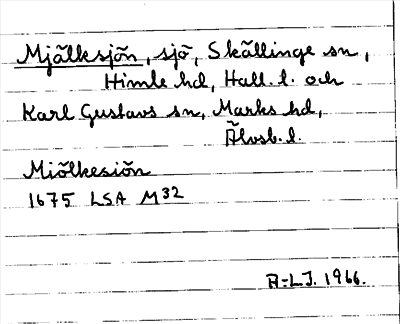 Mjälksjön, sjö, Skällinge sn,
Himle hd, Hall. l. och
Karl Gustavs sn, Marks hd,
Älvsb. l.
Miölkesiön
1675 LSA M32
A-LJ. 1966.